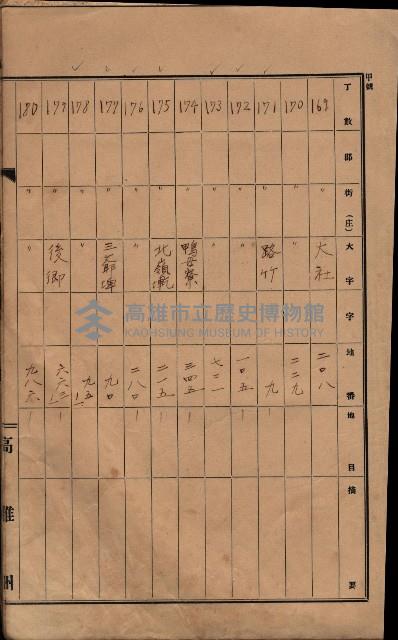 甲號
丁數 郡 街(庄) 大字 字 地番 地目 摘要
169 大社 二〇八
170 〃 〃 二二九
171 〃 路竹 九
172 〃 〃 一〇五
173 〃 〃
174 〃 鴨母寮 三四五
175 〃 北嶺墘 二一五
176 〃 〃 二八〇
177 〃 三爺埤 九〇
178 〃 〃
179 〃 後鄉
180 〃 〃
高雄州
高雄市立歷史博物館
KAOHSIUNG MUSEUM OF HISTORY